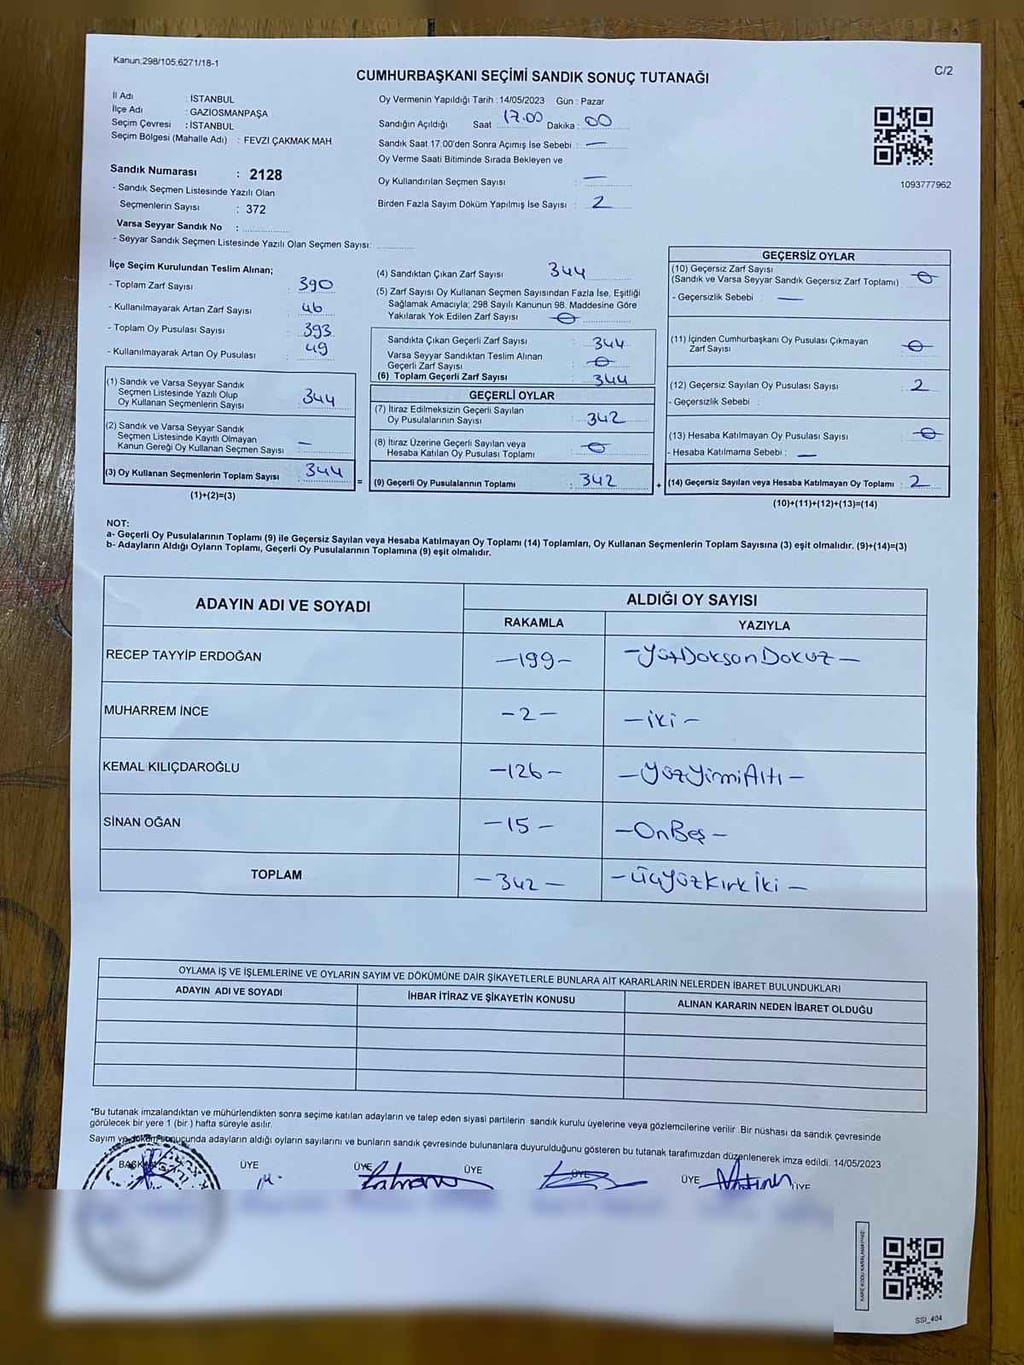 Kanun:298/105,6271/18-1
C/2
CUMHURBAŞKANI SEÇİMİ SANDIK SONUÇ TUTANAĞI
İl Adı : İSTANBUL
İlçe Adı : GAZİOSMANPAŞA
Seçim Çevresi : İSTANBUL
Seçim Bölgesi (Mahalle Adı) : FEVZİ ÇAKMAK MAH.
Oy Vermenin Yapıldığı Tarih :14/05/2023 Gün : Pazar
Sandığın Açıldığı Saat 17.00 Dakika : 00
Sandık Saat 17.00'den Sonra Açılmış İse Sebebi : —
Oy Verme Saati Bitiminde Sırada Bekleyen ve
Oy Kullandırılan Seçmen Sayısı : —
Birden Fazla Sayım Döküm Yapılmış İse Sayısı : 2
1093777962
Sandık Numarası : 2128
- Sandık Seçmen Listesinde Yazılı Olan
Seçmenlerin Sayısı : 372
Varsa Seyyar Sandık No :
- Seyyar Sandık Seçmen Listesinde Yazılı Olan Seçmen Sayısı:
İlçe Seçim Kurulundan Teslim Alınan;
- Toplam Zarf Sayısı : 390
- Kullanılmayarak Artan Zarf Sayısı : 46
- Toplam Oy Pusulası Sayısı : 393
- Kullanılmayarak Artan Oy Pusulası : 49
(1) Sandık ve Varsa Seyyar Sandık
Seçmen Listesinde Yazılı Olup
Oy Kullanan Seçmenlerin Sayısı : 344
(2) Sandık ve Varsa Seyyar Sandık
Seçmen Listesinde Kayıtlı Olmayan
Kanun Gereği Oy Kullanan Seçmen Sayısı : —
(3) Oy Kullanan Seçmenlerin Toplam Sayısı : 344
(1)+(2)=(3)
(4) Sandıktan Çıkan Zarf Sayısı : 344
(5) Zarf Sayısı Oy Kullanan Seçmen Sayısından Fazla İse, Eşitliği
Sağlamak Amacıyla; 298 Sayılı Kanunun 98. Maddesine Göre
Yakılarak Yok Edilen Zarf Sayısı : 0
Sandıkta Çıkan Geçerli Zarf Sayısı : 344
Varsa Seyyar Sandıktan Teslim Alınan
Geçerli Zarf Sayısı : 0
(6) Toplam Geçerli Zarf Sayısı : 344
GEÇERLİ OYLAR
(7) İtiraz Edilmeksizin Geçerli Sayılan
Oy Pusulalarının Sayısı : 342
(8) İtiraz Üzerine Geçerli Sayılan veya
Hesaba Katılan Oy Pusulası Toplamı : 0
= (9) Geçerli Oy Pusulalarının Toplamı : 342
GEÇERSİZ OYLAR
(10) Geçersiz Zarf Sayısı
(Sandık ve Varsa Seyyar Sandık Geçersiz Zarf Toplamı) : 0
- Geçersizlik Sebebi : —
(11) İçinden Cumhurbaşkanı Oy Pusulası Çıkmayan
Zarf Sayısı : 0
(12) Geçersiz Sayılan Oy Pusulası Sayısı : 2
- Geçersizlik Sebebi :
(13) Hesaba Katılmayan Oy Pusulası Sayısı : 0
- Hesaba Katılmama Sebebi : —
+ (14) Geçersiz Sayılan veya Hesaba Katılmayan Oy Toplamı : 2
(10)+(11)+(12)+(13)=(14)
NOT:
a- Geçerli Oy Pusulalarının Toplamı (9) ile Geçersiz Sayılan veya Hesaba Katılmayan Oy Toplamı (14) Toplamları, Oy Kullanan Seçmenlerin Toplam Sayısına (3) eşit olmalıdır. (9)+(14)=(3)
b- Adayların Aldığı Oyların Toplamı, Geçerli Oy Pusulalarının Toplamına (9) eşit olmalıdır.
ADAYIN ADI VE SOYADI ALDIĞI OY SAYISI
RAKAMLA YAZIYLA
RECEP TAYYİP ERDOĞAN —199— —YüzDoksanDokuz—
MUHARREM İNCE —2— —iki—
KEMAL KILIÇDAROĞLU —126— —YüzYirmiAltı—
SİNAN OĞAN —15— —OnBeş—
TOPLAM —342— —ÜçYüzKırkİki—
OYLAMA İŞ VE İŞLEMLERİNE VE OYLARIN SAYIM VE DÖKÜMÜNE DAİR ŞİKAYETLERLE BUNLARA AİT KARARLARIN NELERDEN İBARET BULUNDUKLARI
ADAYIN ADI VE SOYADI İHBAR İTİRAZ VE ŞİKAYETİN KONUSU ALINAN KARARIN NEDEN İBARET OLDUĞU
*Bu tutanak imzalandıktan ve mühürlendikten sonra seçime katılan adayların ve talep eden siyasi partilerin sandık kurulu üyelerine veya gözlemcilerine verilir. Bir nüshası da sandık çevresinde
görülecek bir yere 1 (bir ) hafta süreyle asılır.
Sayım ve döküm sonucunda adayların aldığı oyların sayılarını ve bunların sandık çevresinde bulunanlara duyurulduğunu gösteren bu tutanak tarafımızdan düzenlenerek imza edildi. 14/05/2023
BAŞKAN ÜYE ÜYE ÜYE ÜYE ÜYE ÜYE
SSI_404